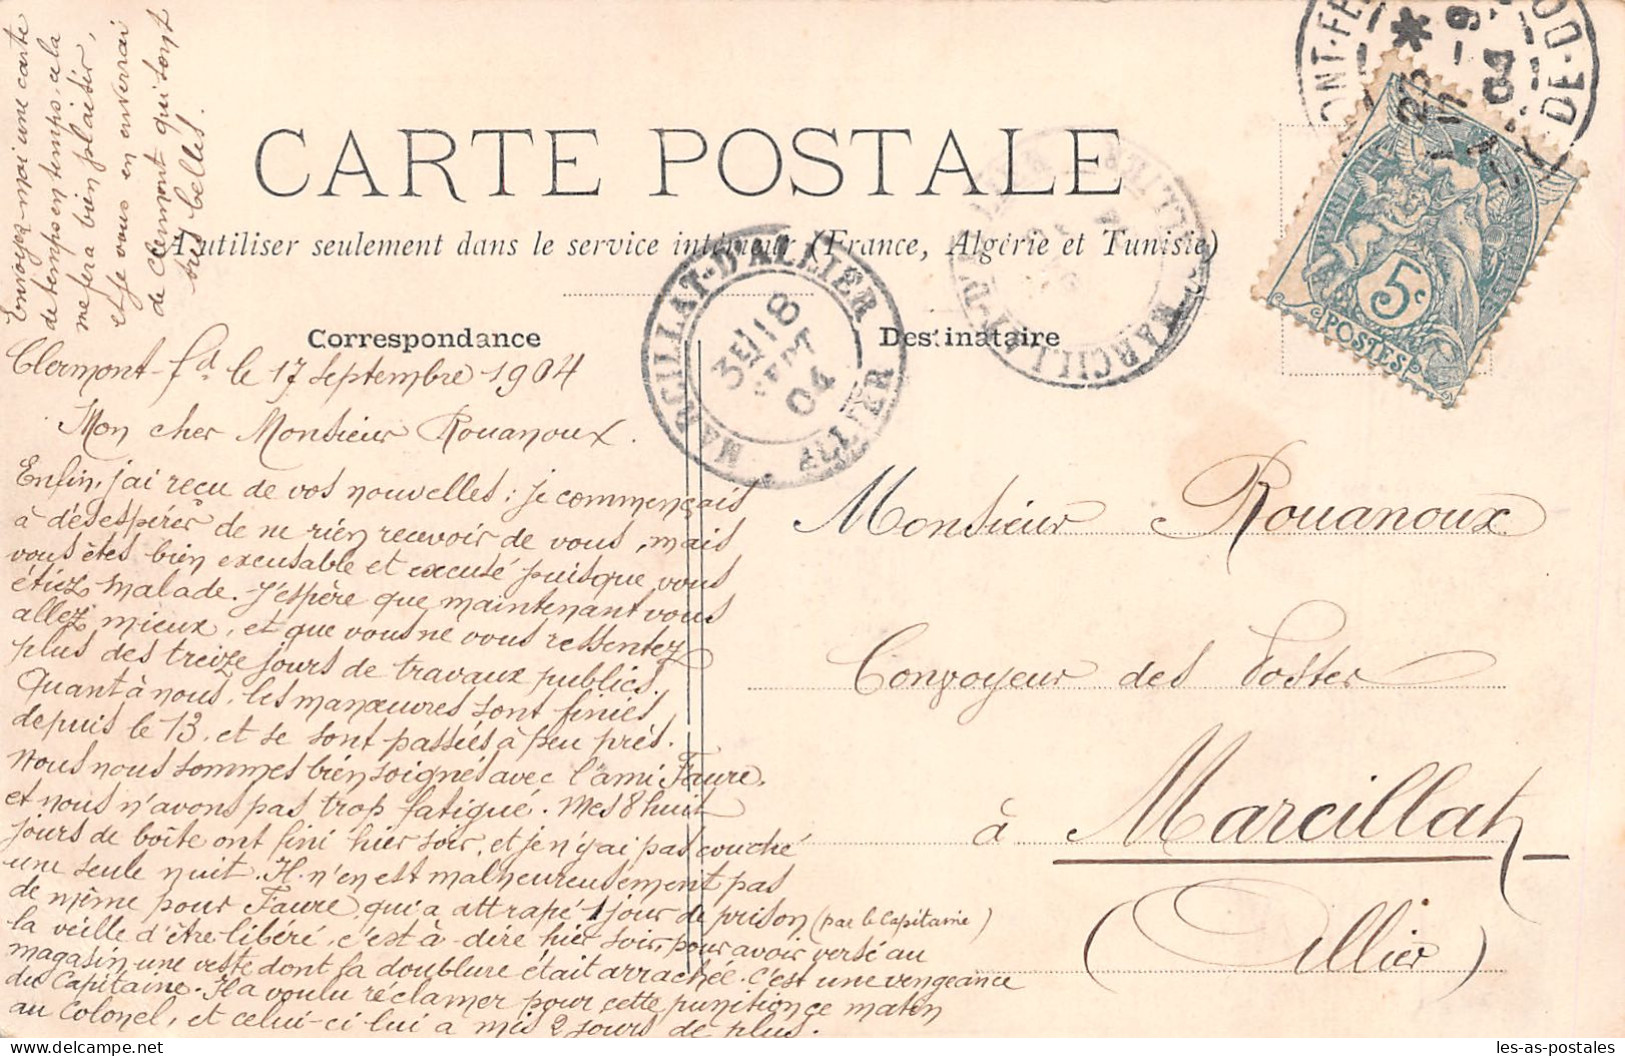 Envoyez-moi une carte
de temps en temps. cela
me fera bien plaisir,
et je vous en enverrai
de Clermont qui sont
très belles.
CARTE POSTALE
A utiliser seulement dans le service intérieur (France, Algérie et Tunisie)
Correspondance
Destinataire
MARCILLAT-D'ALLIER
3E/18
SEPT
04
ALLIER
MARCILLAT-D'
ONT-FE
DE-DO
5c
POSTES
Clermont-fd le 17 septembre 1904
Mon cher Monsieur Rouanoux.
Enfin, j'ai reçu de vos nouvelles ; je commençais
à désespérer de ne rien recevoir de vous, mais
vous êtes bien excusable et excusé puisque vous
étiez malade. J'espère que maintenant vous
allez mieux, et que vous ne vous ressentez
plus des treize jours de travaux publics.
Quant à nous, les manœuvres sont finies
depuis le 13, et se sont passées à peu près.
Nous nous sommes bien soignés avec l'ami Faure,
et nous n'avons pas trop fatigué. Mes 8 huit
jours de boîte ont fini hier soir, et je n'y ai pas couché
une seule nuit. Il n'en est malheureusement pas
de même pour Faure, qui a attrapé 1 jour de prison (par le Capitaine)
la veille d'être libéré, c'est à-dire hier soir, pour avoir versé au
magasin une veste dont la doublure était arrachée. C'est une vengeance
du Capitaine. Il a voulu réclamer pour cette punition ce matin
au Colonel, et celui-ci lui a mis 2 jours de plus.
Monsieur Rouanoux
Convoyeur des Postes
à Marcillat
(Allier)
les-as-postales